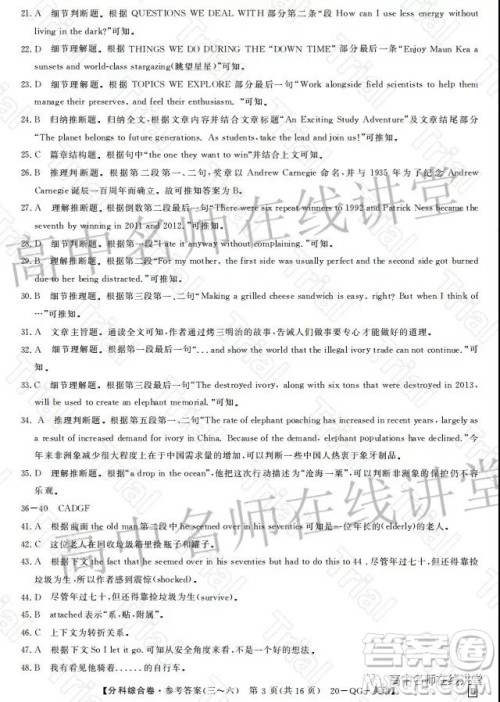 21. A 细节判断题。根据 QUESTIONS WE DEAL WITH 部分第二条“段 How can I use less energy without
living in the dark?”可知。
22. D 细节理解题。根据 THINGS WE DO DURING THE “DOWN TIME” 部分最后一条“Enjoy Maun Kea
sunsets and world-class stargazing(眺望星星)”可知。
23. D 细节理解题。根据 TOPICS WE EXPLORE 部分最后一句“Work alongside field scientists to help
manage their preserves, and feel their enthusiasm. ”可知。
24. B 归纳推断题。归纳全文,根据文章内容并结合文章标题“An Exciting Study Adventure”及文章结尾部分
“The planet belongs to future generations. As students, take the lead and join us!”可推知。
25. C 篇章结构题。根据句中“the one they want to win”并结合上文可知。
26. B 推理判断题。根据第二段第一、二句,奖章以 Andrew Carnegie 命名,并与 1935 年为了纪念 Andrew
Carnegie 诞辰一百周年而确立。故可推知答案为 B。
27. A 理解推断题。根据倒数第二段最后一句“There were six repeat winners to 1992 and Patrick Ness became the
seventh by winning in 2011 and 2012.”可知。
28. D 细节判断题。根据第一段“I ate it anyway without complaining.”可知。
29. B 理解推断题。根据第二段“For my mother, the first side was usually perfect and the second side got burned
due to her being distracted.”可知。
30. B 细节推理题。根据第三段第一、二句“Making a grilled cheese sandwich is easy, right? But when I think of
…”可推知。
31. A 文章主旨题。通读全文可知,作者通过烤三明治的故事,告诫人们做节事不要太专注。
32. A 细节理解题。根据第一段最后一句“...and show the world that the illegal ivory trade can not continue.”可
知。
33. C 细节理解题。根据第三段最后一句“The destroyed ivory, along with six tons that were destroyed in 2013,
will be used to create an elephant memorial.”可知。
34. A 推理判断题。根据第五段第一句“The rate of elephant poaching has increased in recent years, largely as
a result of increased demand for ivory in China. Because of the demand, elephant populations have declined.”今
年来非洲象减少很大程度上在于中国需求量的增加,故可推知。
35. D 理解推断题。根据“a drop in the ocean”,他把这次行动描述为“沧海一粟”,可以判断非洲象的保护仍不容
乐观。
36－40 CADGF
41. A 根据前面 the old man 第二段中 he seemed over in his seventies 可知是一位年长的(elderly)的老人。
42. C 这位老人在回收垃圾箱里捡瓶子和罐子。
43. D 根据文中 the fact that he seemed over in his seventies but had to do this to 44 , 尽管年过七十,但还在捡
垃圾为生。所以作者感到震惊(shocked)。
44. D 尽管年过七十,但还在捡垃圾为生的生存(survive)。
45. B attached表示“系,贴,附属”。
46. C 上下文为转折关系。
47. D 根据下文 So I let it go, 可知从安全角度来看,不是一个好的想法。
48. B 我看了一下时间。
【分科综合卷·参考答案(三~六) 第 3 页(共 16 页) 20－QG－
高中名师在线讲堂
高中名师在线讲堂
高中名师在线讲堂
Trial